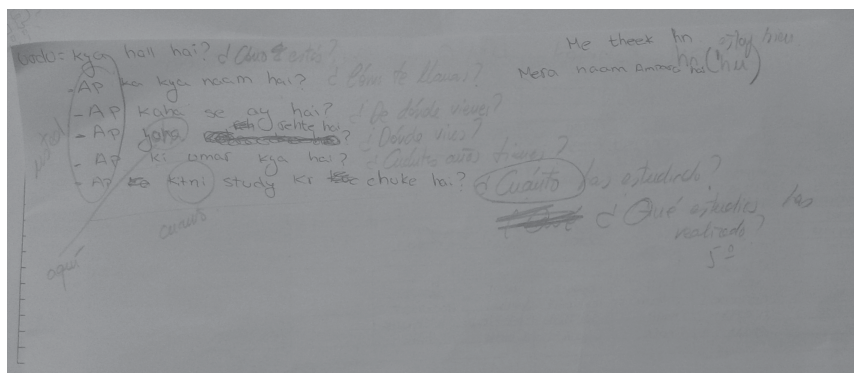 Urdu = Kya hall hai? ¿Cómo estás?
Me theek hn estoy bien
Mera naam Ameed hai hn (hu)
- Ap ka kya naam hai? ¿Cómo te llamas?
- Ap kaha se ay hai? ¿De dónde vienes?
- Ap jaha rehte ho? ¿Dónde vives?
- Ap ki umar kya hai? ¿Cuántos años tienes?
- Ap ktni study kr chuke hai? ¿Cuánto has estudiado?
¿Qué estudios has
realizado?
5º
usted
cuanto
aquí